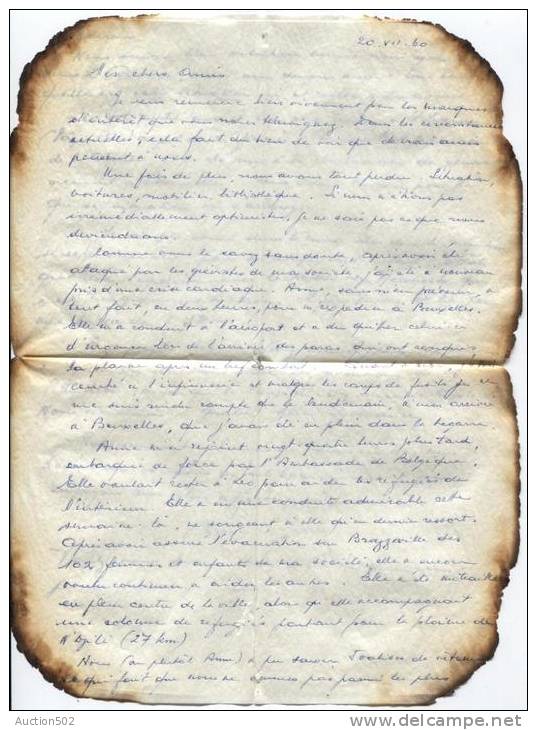 20 VII 60
Mes chers Amis
Je vous remercie bien vivement pour les marques
d'intérêt que vous nous témoignez. Dans les circonstances
actuelles, cela fait du bien de voir que de vrais amis
pensent à nous.
Une fois de plus, nous avons tout perdu. Situation,
voitures, mobilier, bibliothèque. Si nous n'étions pas
irrémédiablement optimistes, je ne sais pas ce que nous
deviendrions.
Comme vous le savez sans doute, après avoir été
attaqué par les grévistes de ma société, j'ai été à nouveau
pris d'une crise cardiaque. Anne, sans m'en prévenir, a
tout fait, en deux heures, pour m'expédier à Bruxelles.
Elle m'a conduit à l'aéroport et a dû quitter celui-ci
lors de l'arrivée des paras, qui ont
la plaine après un bref combat.
couché à l'infirmerie et malgré les coups de fusils je
me suis rendu compte que le lendemain, à mon arrivée
à Bruxelles, que j'avais été en plein dans la bagarre.
Anne m'a rejoint vingt quatre heures plus tard,
embarquée de force par l'Ambassade de Belgique.
Elle voulait rester à Léo pour aider les réfugiés de
l'intérieur. Elle a eu une conduite admirable cette
semaine-là, ne songeant à elle qu'en dernier ressort.
Après avoir assuré l'évacuation sur Brazzaville des
102 femmes et enfants de ma société, elle a encore
voulu continuer à aider les autres. Elle a été mitraillée
en plein centre de la ville, alors qu'elle accompagnait
une colonne de réfugiés partant pour la plaine de
N'Djili (27 km)
Nous (ou plutôt Anne) a pu sauver
ce qui fait que nous ne sommes pas parmi les plus
Auction502
delcampe.net